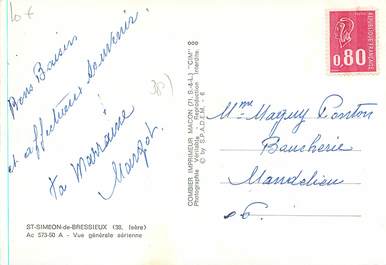 10 f
38)
Bons Baisers
et affectueux Souvenir.
ta Marraine
Margot.
ST-SIMEON-de-BRESSIEUX (38. Isère)
Ac 573-50 A - Vue générale aérienne
COMBIER IMPRIMEUR MACON (71. S.-&-L.) "CIM"
Photographie Véritable - Reproduction Interdite
© by S.P.A.D.E.M. - 6
REPUBLIQUE FRANÇAISE
0,80
Mme Maguy Ponton
Boucherie
Mandelieu
06.